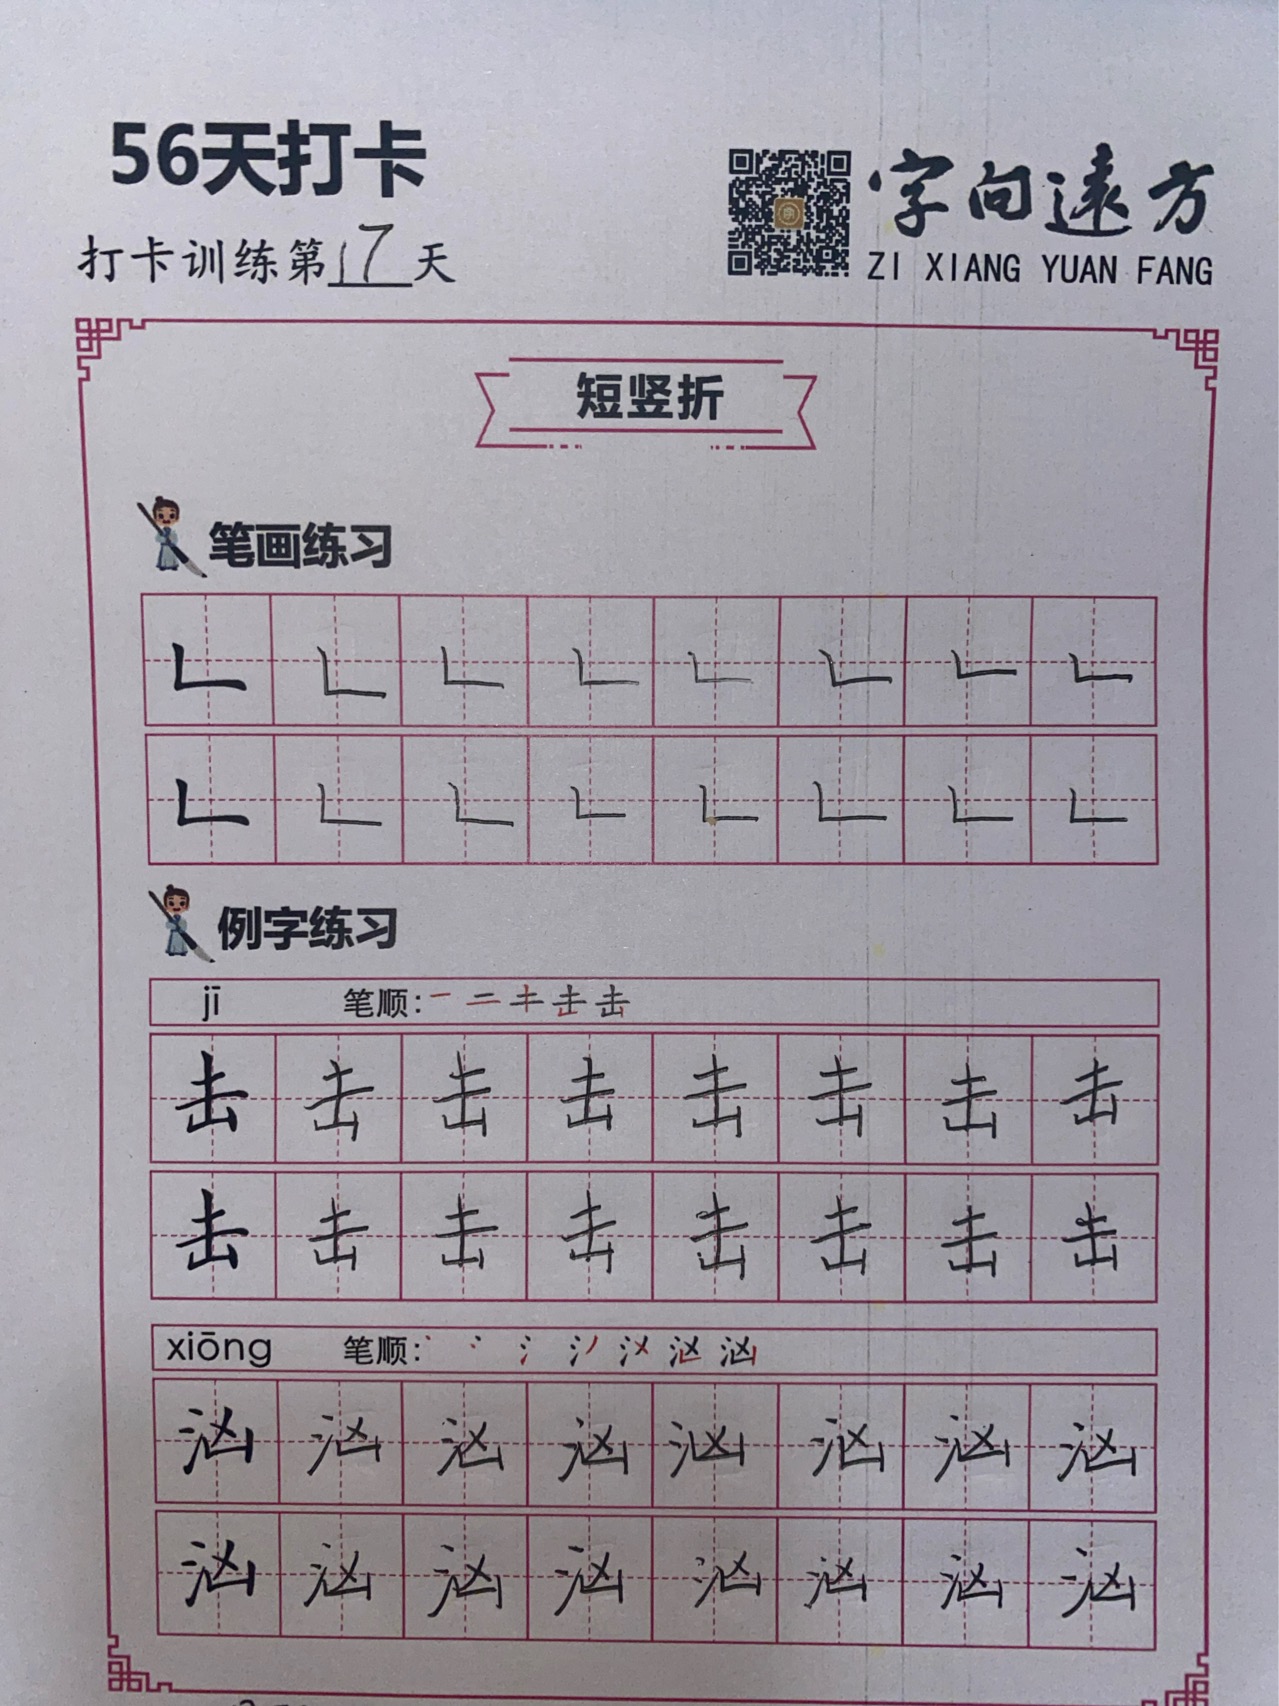 56天打卡
字向遠方
打卡训练第17天
ZI XIANG YUAN FANG
短竖折
笔画练习
𠃊 𠃊 𠃊 𠃊 𠃊 𠃊 𠃊 𠃊
𠃊 𠃊 𠃊 𠃊 𠃊 𠃊 𠃊 𠃊
例字练习
jī 笔顺: 一 二 キ 击 击
击 击 击 击 击 击 击 击
击 击 击 击 击 击 击 击
xiōng 笔顺: 汹
汹 汹 汹 汹 汹 汹 汹 汹
汹 汹 汹 汹 汹 汹 汹 汹